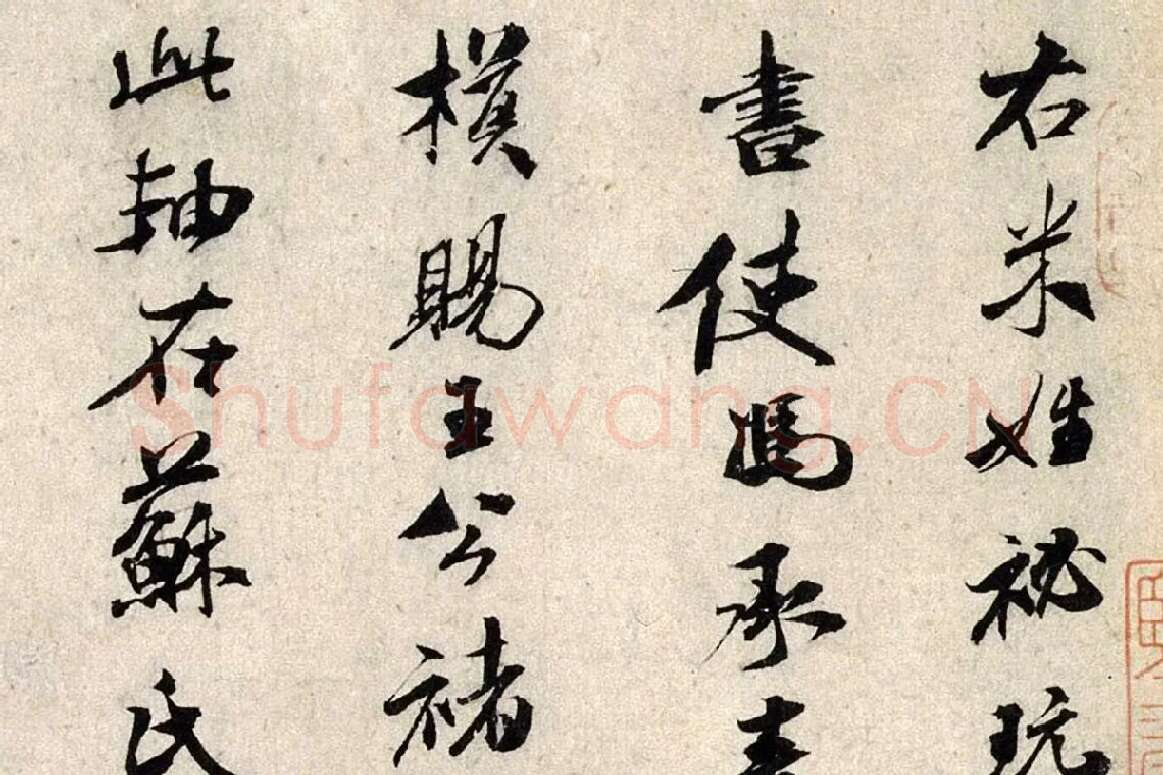 右米姓祕玩
書使馮承素
模賜王公褚
此軸在蘇氏
Shufawang.CN